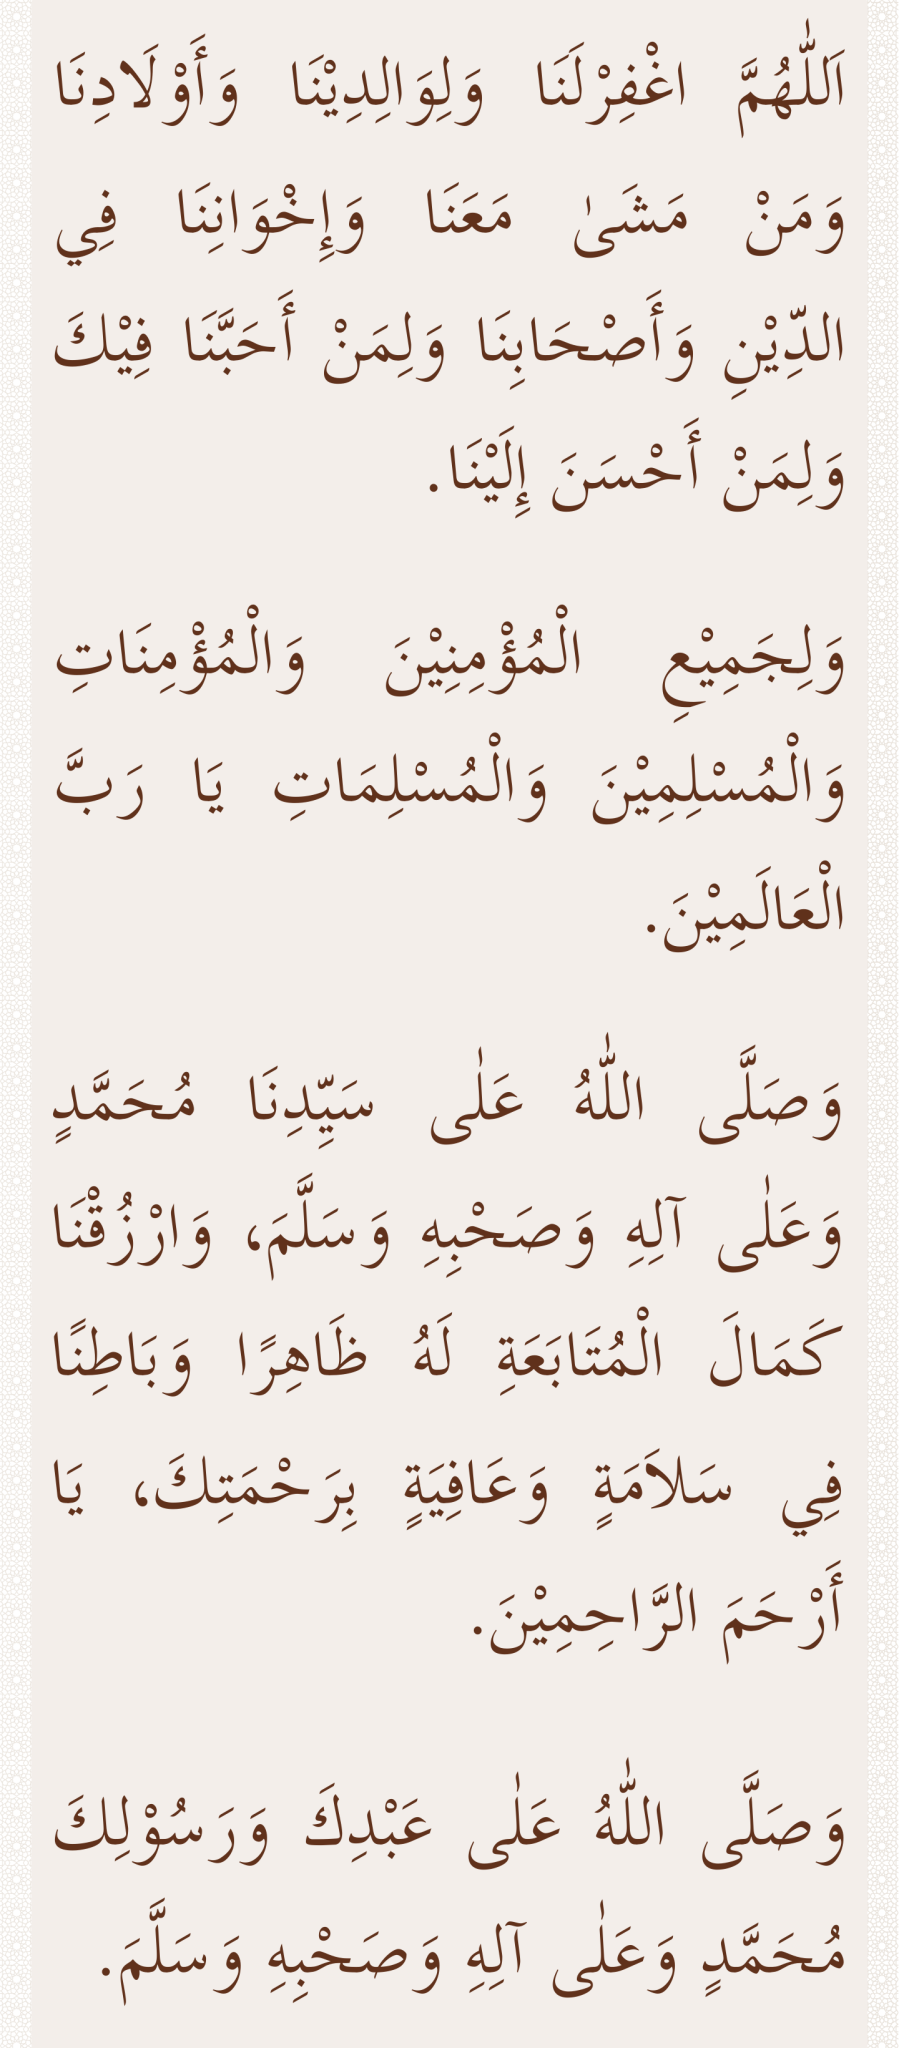 اَللّٰهُمَّ اغْفِرْلَنَا وَلِوَالِدِيْنَا وَأَوْلَادِنَا
وَمَنْ مَشَىٰ مَعَنَا وَإِخْوَانِنَا فِي
الدِّيْنِ وَأَصْحَابِنَا وَلِمَنْ أَحَبَّنَا فِيْكَ
وَلِمَنْ أَحْسَنَ إِلَيْنَا.
وَلِجَمِيْعِ الْمُؤْمِنِيْنَ وَالْمُؤْمِنَاتِ
وَالْمُسْلِمِيْنَ وَالْمُسْلِمَاتِ يَا رَبَّ
الْعَالَمِيْنَ.
وَصَلَّى اللّٰهُ عَلٰى سَيِّدِنَا مُحَمَّدٍ
وَعَلٰى آلِهِ وَصَحْبِهِ وَسَلَّمَ، وَارْزُقْنَا
كَمَالَ الْمُتَابَعَةِ لَهُ ظَاهِرًا وَبَاطِنًا
فِي سَلاَمَةٍ وَعَافِيَةٍ بِرَحْمَتِكَ، يَا
أَرْحَمَ الرَّاحِمِيْنَ.
وَصَلَّى اللّٰهُ عَلٰى عَبْدِكَ وَرَسُوْلِكَ
مُحَمَّدٍ وَعَلٰى آلِهِ وَصَحْبِهِ وَسَلَّمَ.